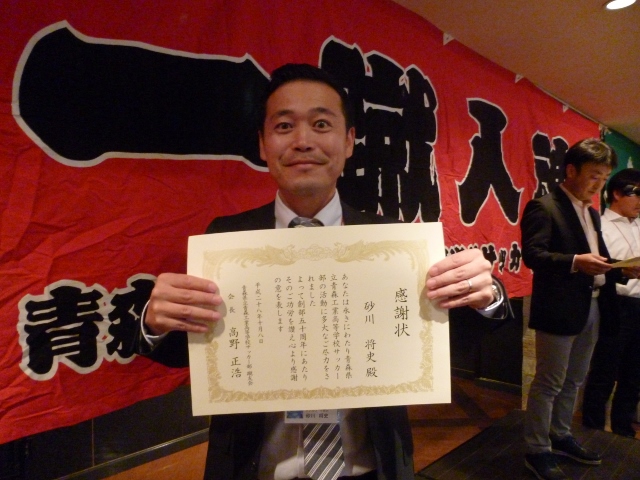 一職人魂
青森
感謝状
砂川 将史 殿
あなたは永きにわたり青森県
立青森工業高等学校サッカー
部の活動に多大なご尽力をさ
れました
よって創部五十周年にあたり
そのご功労を讃え心より感謝
の意を表します
平成二十八年十月八日
青森県立青森工業高等学校サッカー部
会長 高野 正浩